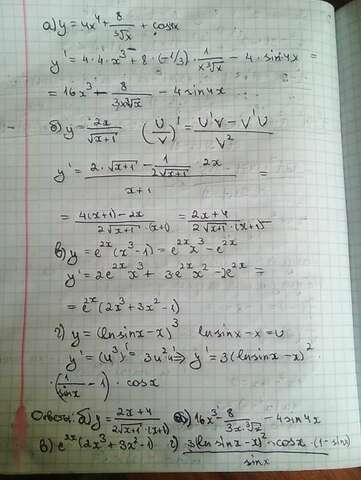 а) y = 4x⁴ + 8/∛x + cos4x
y' = 4·4·x³ + 8·(-1/3)·1/(x∛x) - 4·sin4x =
= 16x³ - 8/(3x∛x) - 4sin4x
б) y = 2x/√(x+1) (U/V)' = (U'V - V'U)/V²
y' = (2·√(x+1) - 1/(2√(x+1))·2x)/(x+1) =
= (4(x+1) - 2x)/(2√(x+1)·(x+1)) = (2x+4)/(2√(x+1)·(x+1))
в) y = e²ˣ(x³-1) = e²ˣx³ - e²ˣ
y' = 2e²ˣx³ + 3e²ˣx² - 2e²ˣ =
= e²ˣ(2x³ + 3x² - 1)
г) y = (ln sinx - x)³ ln sinx - x = U
y' = (U³)' = 3U²U' ⇒ y' = 3(ln sinx - x)²·
·(1/sinx - 1)·cosx
Ответы: б) y' = (2x+4)/(2√(x+1)·(x+1)) а) 16x³ - 8/(3x·∛x) - 4sin4x
в) e²ˣ(2x³+3x²-1) г) 3(ln sinx - x)²·cosx·(1-sinx)/sinx